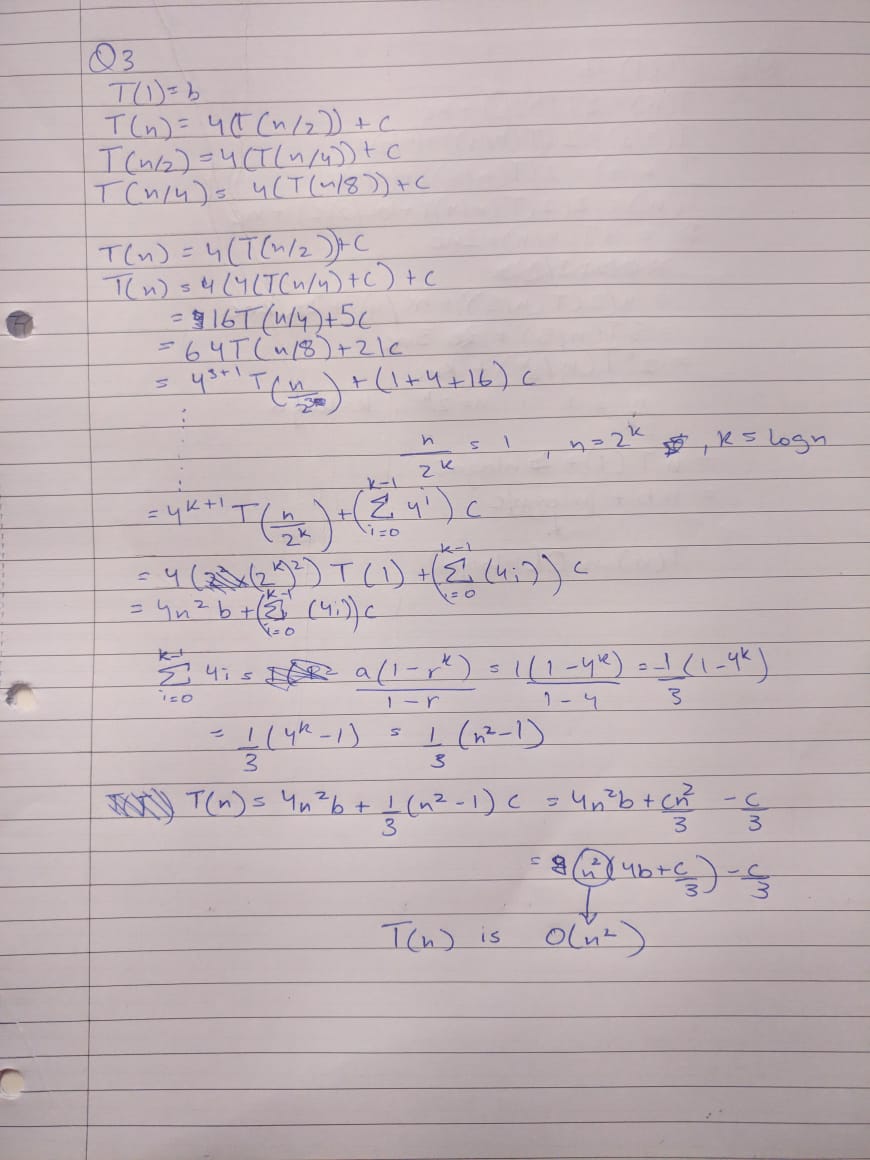 Q3
T(1)=b
T(n)= 4(T(n/2))+c
T(n/2)=4(T(n/4))+c
T(n/4)= 4(T(n/8))+c
T(n) = 4(T(n/2))+c
T(n) = 4(4(T(n/4)+c)+c
= 16T(n/4)+5c
= 64T(n/8)+21c
= 4^{3+1} T(n/2) + (1+4+16) c
n/2^k = 1 , n=2^k , k= logn
= 4^{k+1} T(n/2^k) + (∑_{i=0}^{k-1} 4^i) c
= 4((2^k)^2) T(1) + (∑_{i=0}^{k-1} (4i)) c
= 4n^2 b + (∑_{i=0}^{k-1} (4i)) c
∑_{i=0}^{k-1} 4i = a(1-r^k)/1-r = 1(1-4^k)/1-4 = -1/3 (1-4^k)
= 1/3 (4^k -1) = 1/3 (n^2-1)
T(n)= 4n^2b + 1/3 (n^2-1) c = 4n^2b + cn^2/3 - c/3
= n^2(4b+c/3) - c/3
T(n) is O(n^2)